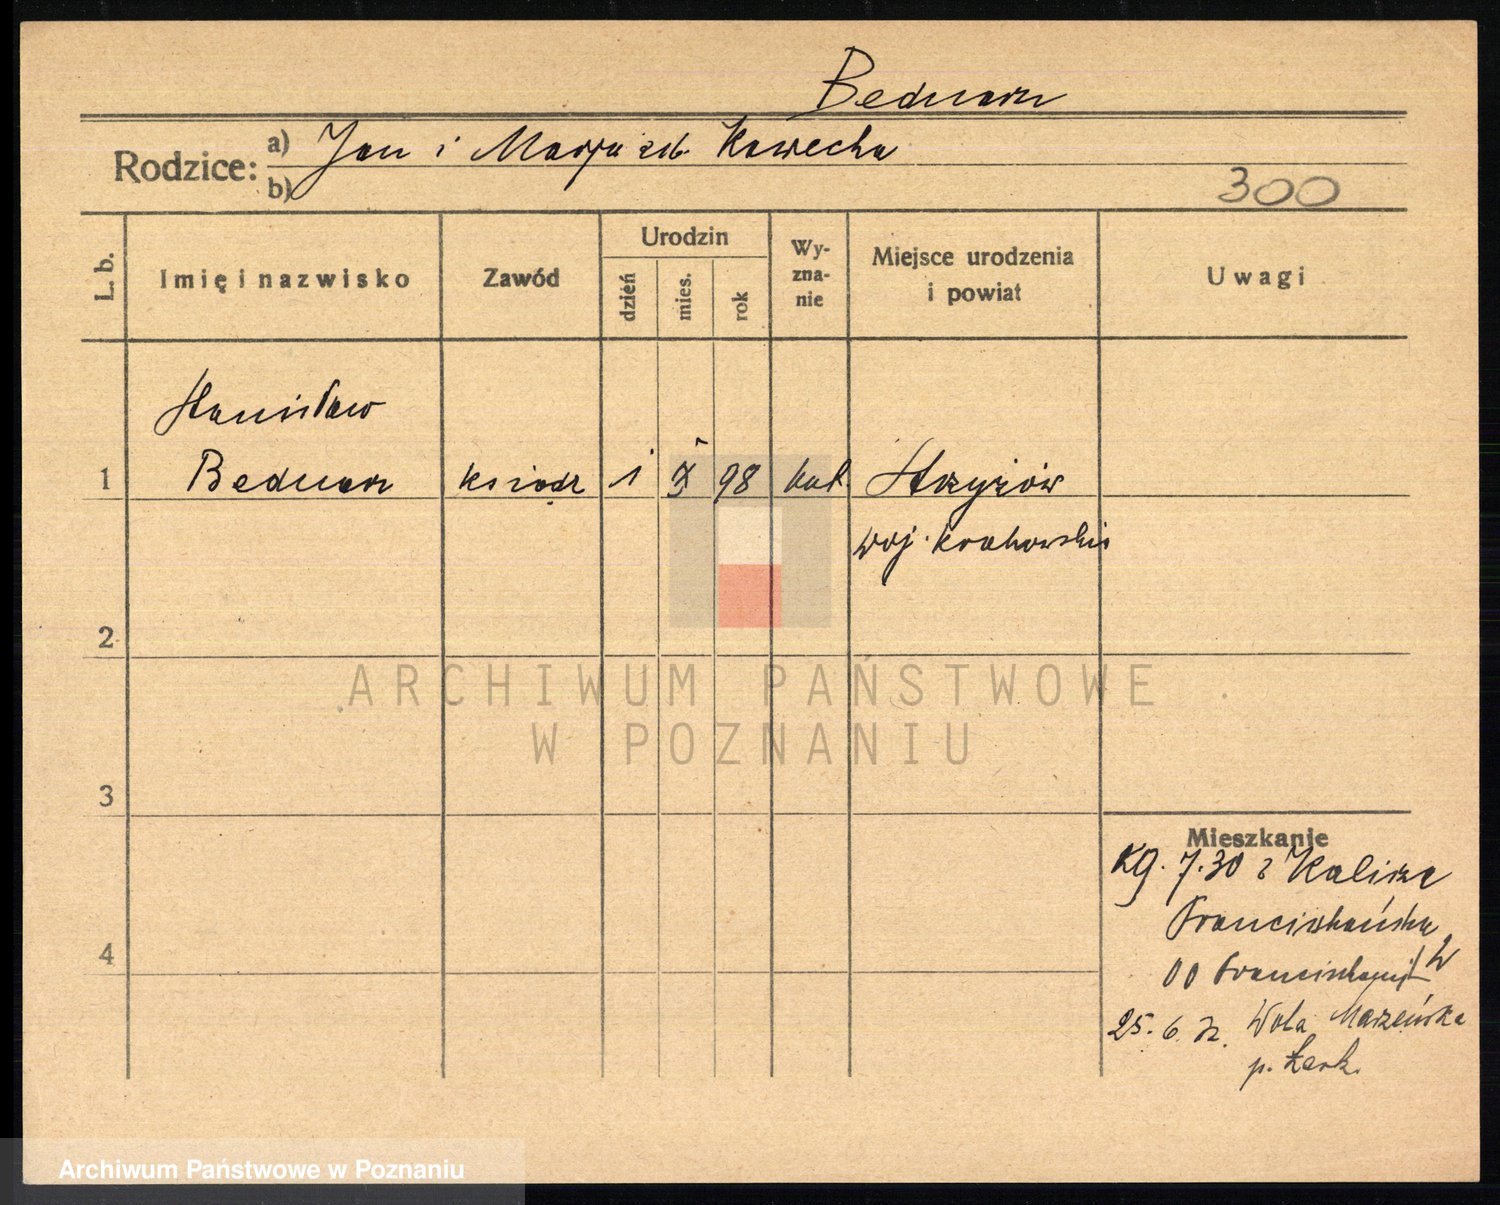 Bednarz
Rodzice: a) Jan i Marja zd. Kawecka
b)
300
L. b. Imię i nazwisko Zawód Urodzin dzień mies. rok Wyzna-nie Miejsce urodzenia i powiat Uwagi
Stanisław
1 Bednarz ksiądz 1 X 98 kat Strzyżów
woj. krakowskie
2
ARCHIWUM PAŃSTWOWE
W POZNANIU
3
Mieszkanie
7.30 z Kalisza
Franciszkańska
4
OO Franciszkanie
25. 6. 32. Wola Marzeńska
p. Łask.
Archiwum Państwowe w Poznaniu